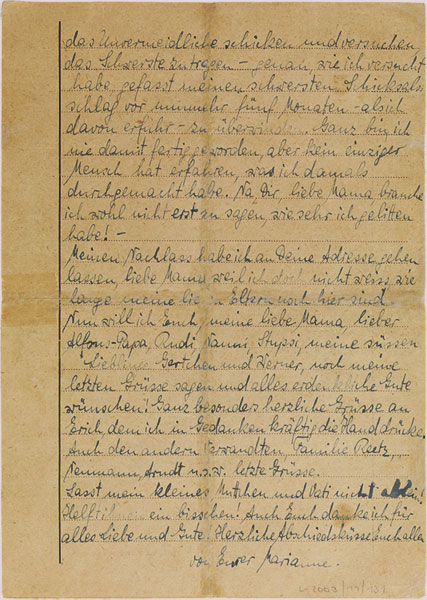 das Unvermeidliche schicken und versuchen,
das Schwerste zu tragen – genau, wie ich versucht
habe, gefasst meinen schwersten Schicksals-
schlag vor nunmehr fünf Monaten – als ich
davon erfuhr – zu überwinden. Ganz bin ich
nie damit fertiggeworden, aber kein einziger
Mensch hat erfahren, was ich damals
durchgemacht habe. Na, Dir, liebe Mama, brauche
ich wohl nicht erst zu sagen, wie sehr ich gelitten
habe! –
Meinen Nachlass habe ich an Deine Adresse gehen
lassen, liebe Mama, weil ich doch nicht weiss, wie
lange meine lieben Eltern noch hier sind.
Nun will ich Euch, meine liebe Mama, lieber
Alfons-Papa, Rudi, Nanni, Stuppsi, meine süssen
Lieblinge Gertchen und Werner, noch meine
letzten Grüsse sagen und alles erdenkliche Gute
wünschen! Ganz besonders herzliche Grüsse an
Erich, dem ich in Gedanken kräftig die Hand drücke.
Auch den andern Verwandten, Familie Reetz,
Neumann, Arndt u.s.w. letzte Grüsse.
Lasst mein kleines Muttchen und Vati nicht allein!
Helft ihnen ein bisschen! Auch Euch danke ich für
alles Liebe und Gute! Herzliche Abschiedsküsse Euch allen
von Eurer Marianne.